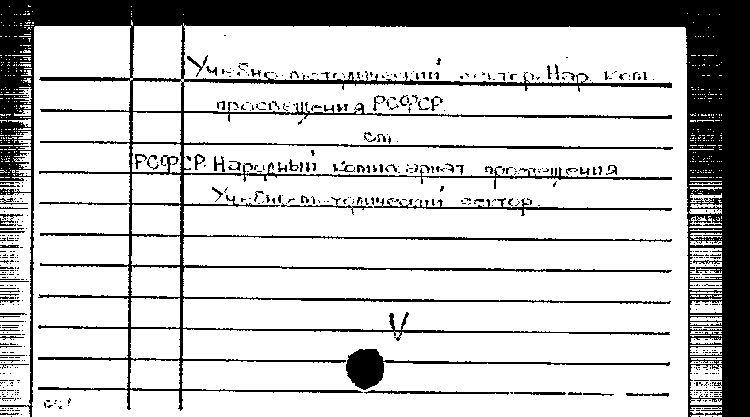 Учебно-методический сектор Нар. ком.
просвещения РСФСР
см.
РСФСР. Народный комиссариат просвещения
Учебно-методический сектор.
V